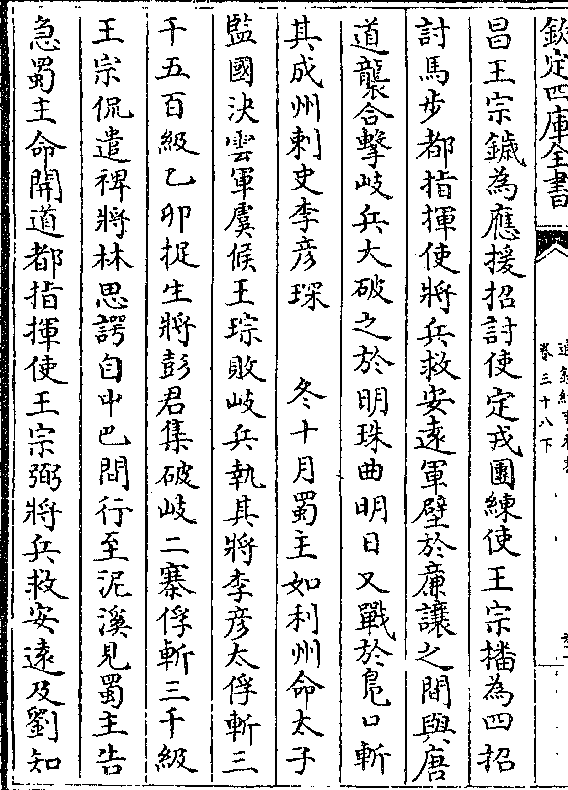 欽定四庫全書
卷三十八下
昌王宗鐬為應援招討使定戎團練使王宗播為四招
討馬步都指揮使將兵救安遠軍壁於廉讓之間與唐
道襲合擊岐兵大破之於明珠曲明日又戰於鳧口斬
其成州刺史李彥琛　冬十月蜀主如利州命太子
監國決雲軍虞候王琮敗岐兵執其將李彥太俘斬三
千五百級乙卯捉生將彭君集破岐二寨俘斬三千級
王宗侃遣裨將林思諤自中巴間行至泥溪見蜀主告
急蜀主命開道都指揮使王宗弼將兵救安遠及劉知